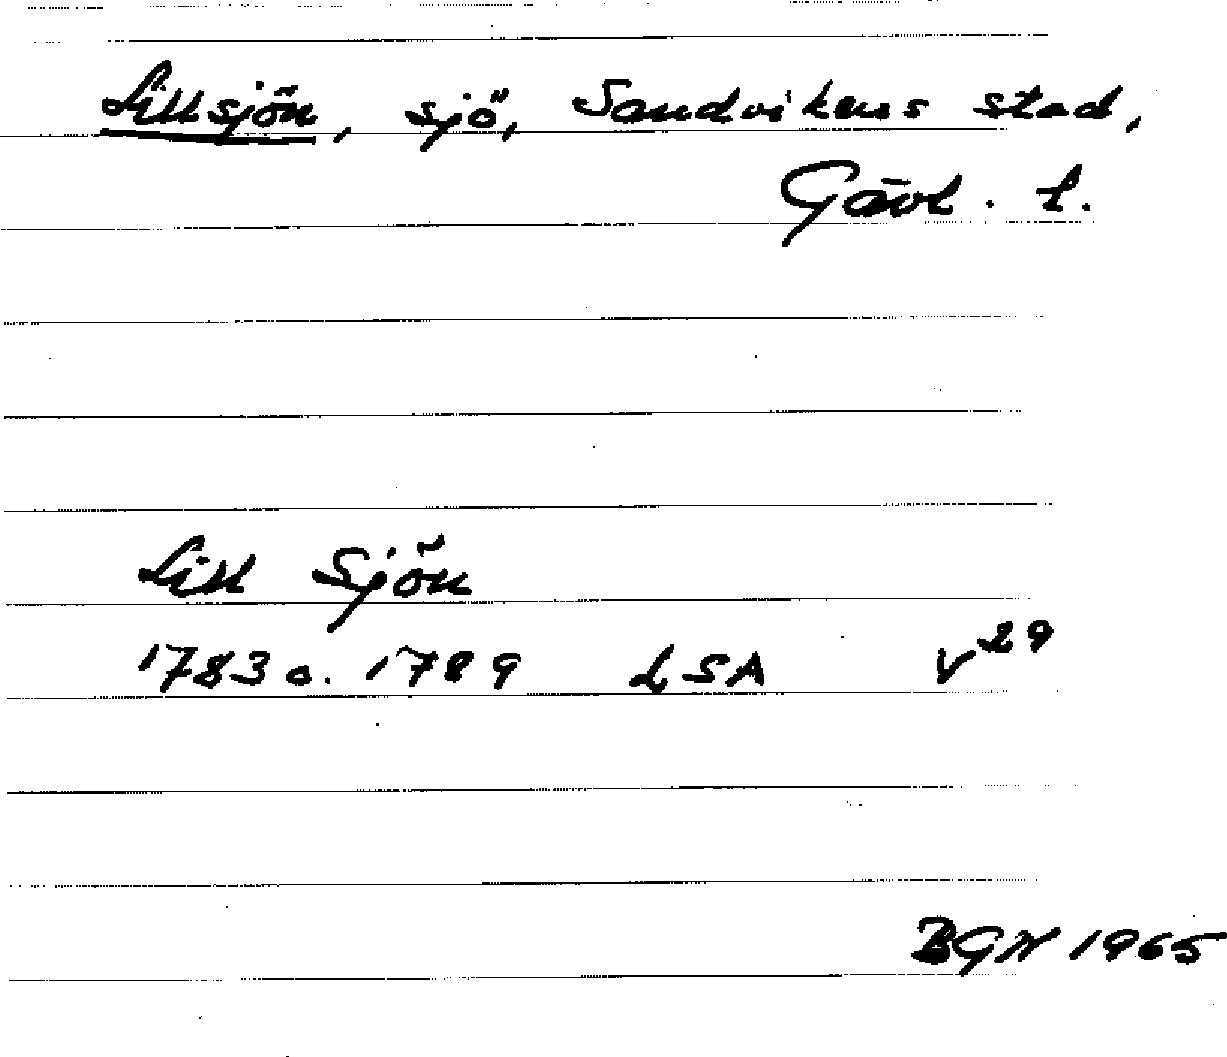 Lillsjön, sjö, Sandvikens stad,
Gävl. l.
Lill Sjön
1783 o. 1789 LSA V29
BGN 1965